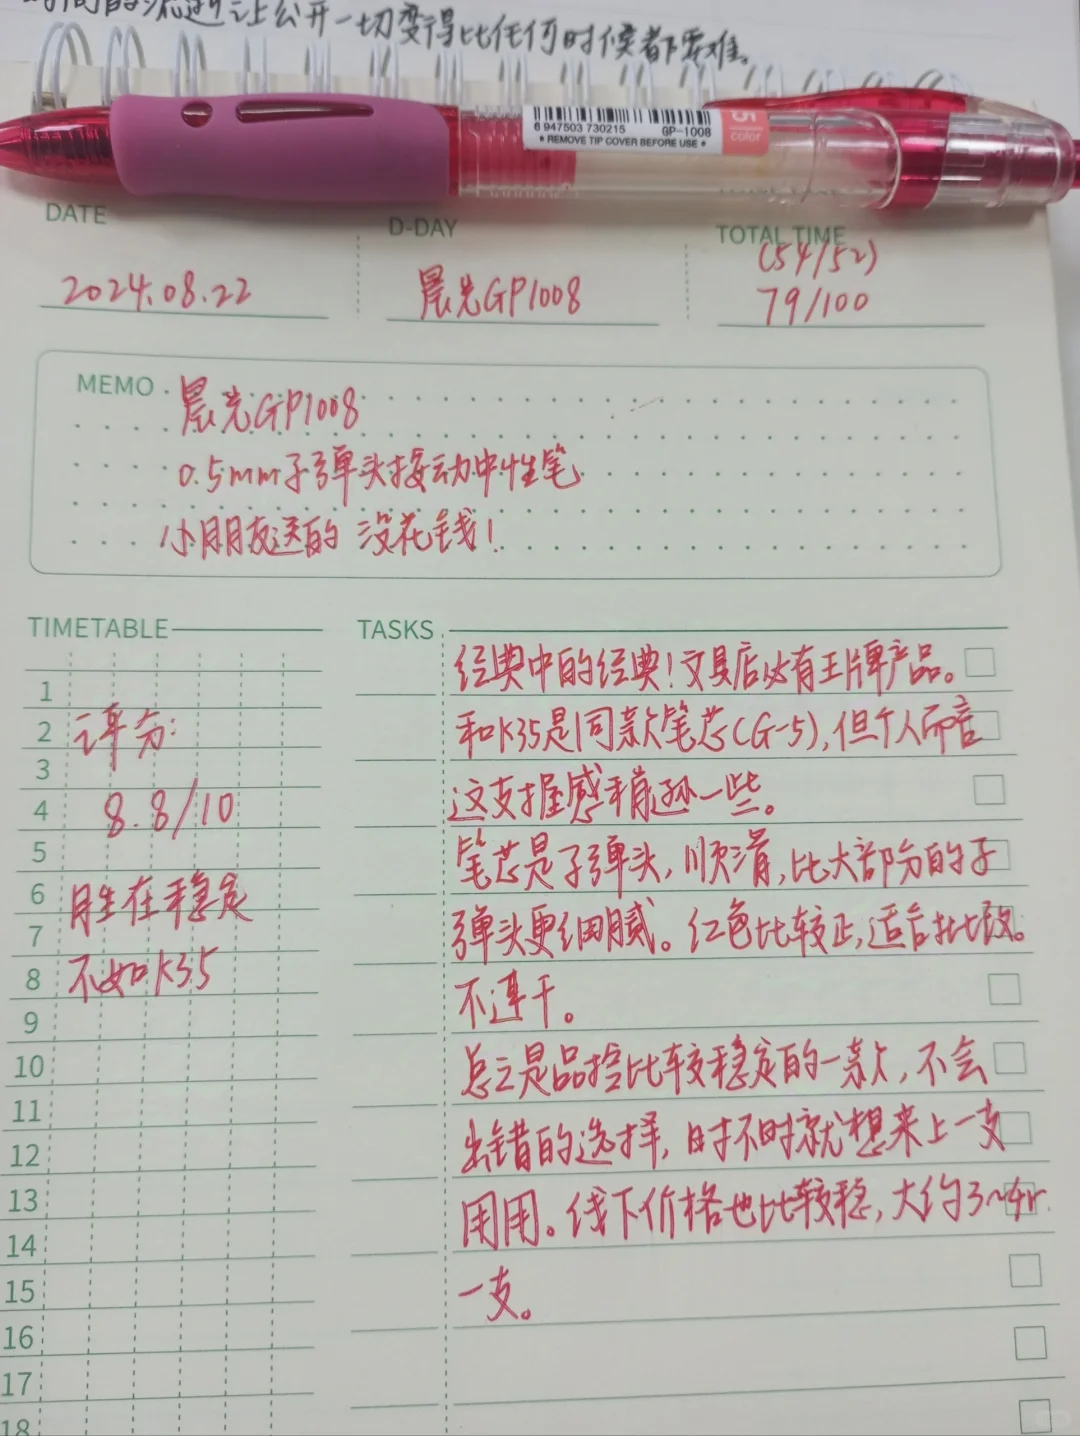 时间的流逝让公开一切变得比任何时候都要难。
6 947503 730215
GP-1008
* REMOVE TIP COVER BEFORE USE *
color
DATE
D-DAY
TOTAL TIME
(54/52)
2024.08.22
晨光GP1008
79/100
MEMO
晨光GP1008
0.5mm子弹头按动中性笔
小朋友送的 没花钱!
TIMETABLE
TASKS
1
2
3
4
5
6
7
8
9
10
11
12
13
14
15
16
17
18
评分:
8.8/10
胜在稳定
不如K35
经典中的经典!文具店必有王牌产品。
和K35是同款笔芯(G-5),但个人而言
这支握感稍逊一些。
笔芯是子弹头,顺滑,比大部分的子
弹头更细腻。红色比较正,适合批改。
不速干。
总之是品控比较稳定的一款,不会
出错的选择,时不时就想来上一支
用用。线下价格也比较稳,大约3~4r
一支。